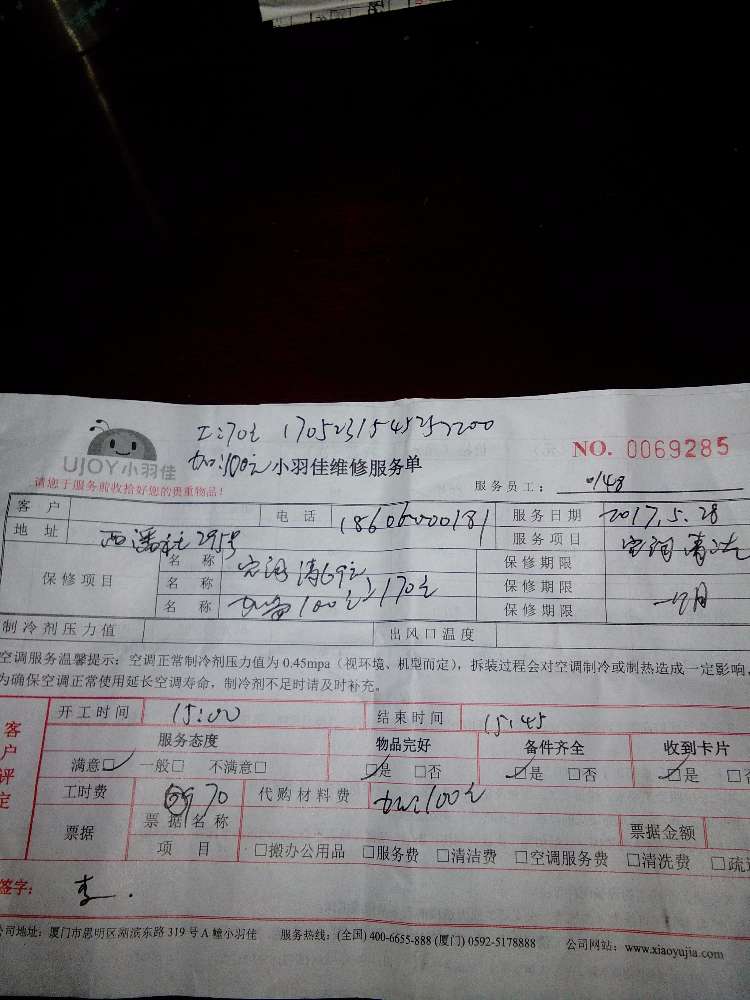 工:70元 1705231545257200
UJOY小羽佳
加:100元 小羽佳维修服务单
NO. 0069285
请您于服务前收拾好您的贵重物品!
服务员工: 0148
客户 电话 18606000181 服务日期 2017.5.28
地址 西潘社295号 服务项目 空调清洗
保修项目 名称 空调清69元 保修期限
名称 170元 保修期限
名称 100元 保修期限 一个月
制冷剂压力值 出风口温度
空调服务温馨提示:空调正常制冷剂压力值为0.45mpa(视环境、机型而定),拆装过程会对空调制冷或制热造成一定影响,
为确保空调正常使用延长空调寿命,制冷剂不足时请及时补充。
客户评定
开工时间 15:00 结束时间 15:45
服务态度 物品完好 备件齐全 收到卡片
满意☑ 一般□ 不满意□ ☑是 □否 ☑是 □否 ☑是 □否
工时费 70 代购材料费 加:100元
票据 票据名称 票据金额
项目 □搬办公用品 □服务费 □清洁费 □空调服务费 □清洗费 □疏
签字: 李.
公司地址:厦门市思明区湖滨东路319号A幢小羽佳 服务热线:(全国)400-6655-888 (厦门)0592-5178888 公司网站:www.xiaoyujia.com